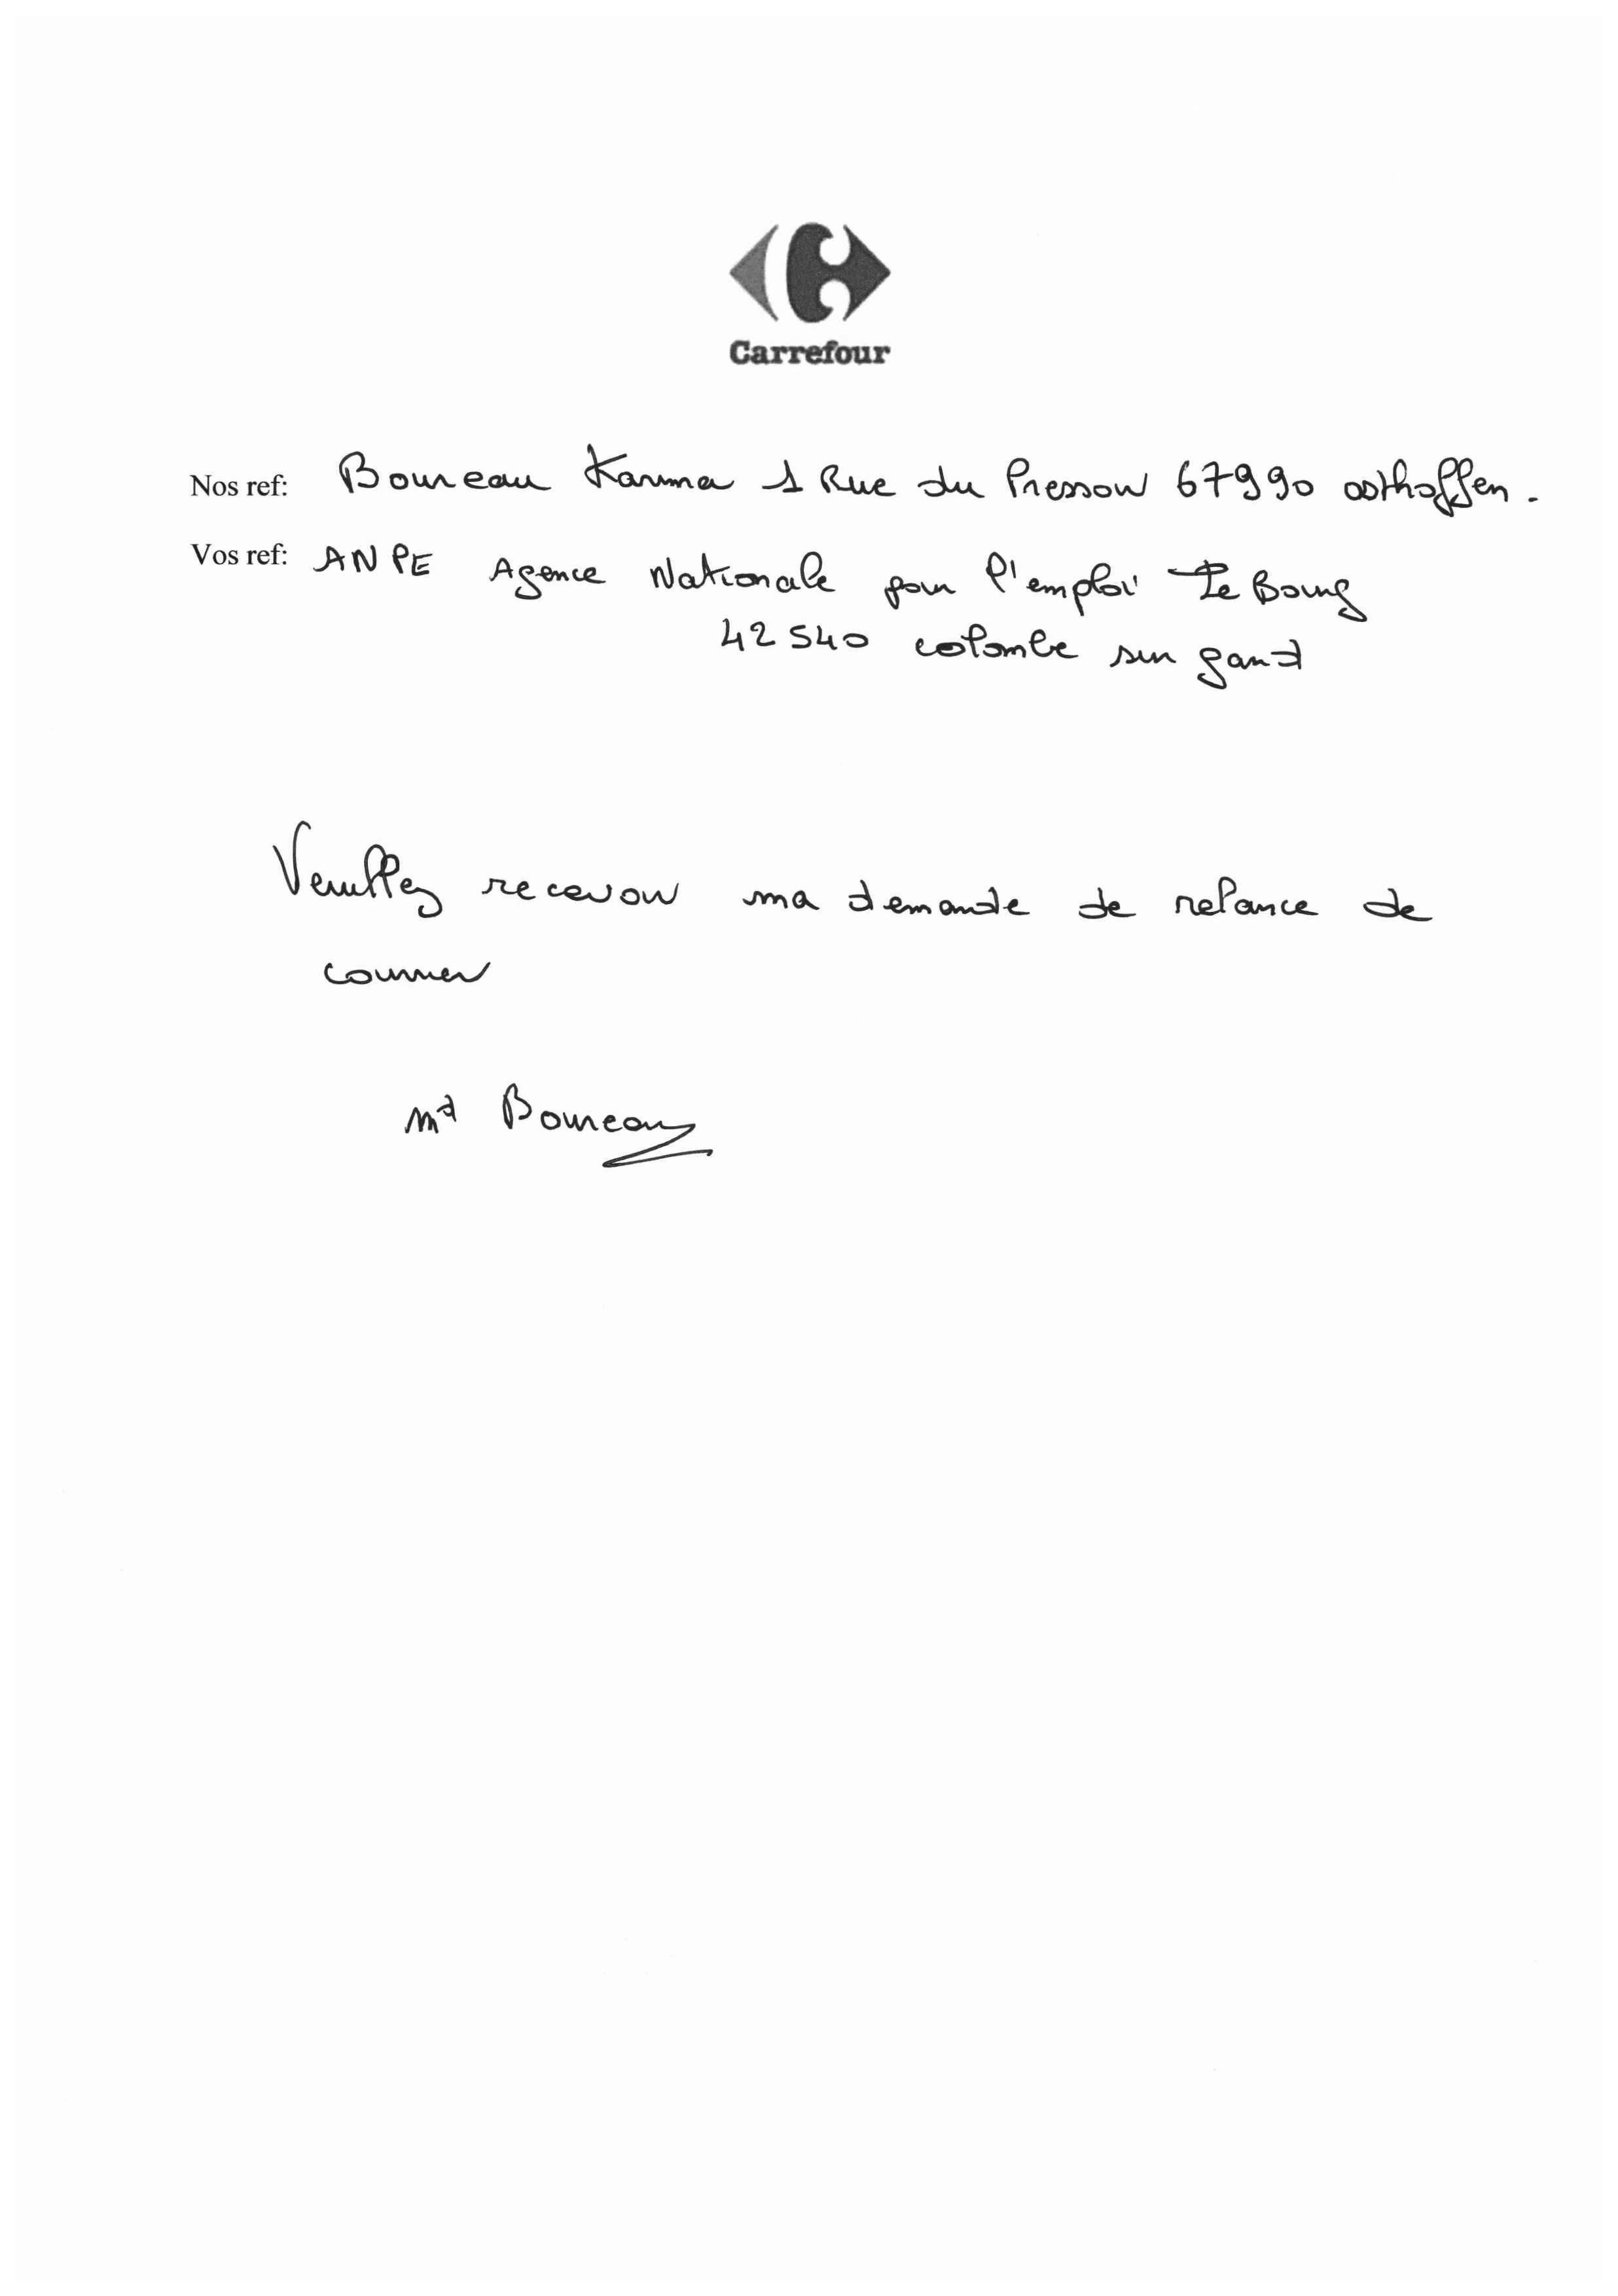 Carrefour
Nos ref: Boureau Karima 1 Rue du Pressoir 67990 osthoffen.
Vos ref: ANPE Agence Nationale pour l'emploi Le Bourg
42540 colombe sur gand
Veuillez recevoir ma demande de relance de
courrier
Md Boureau